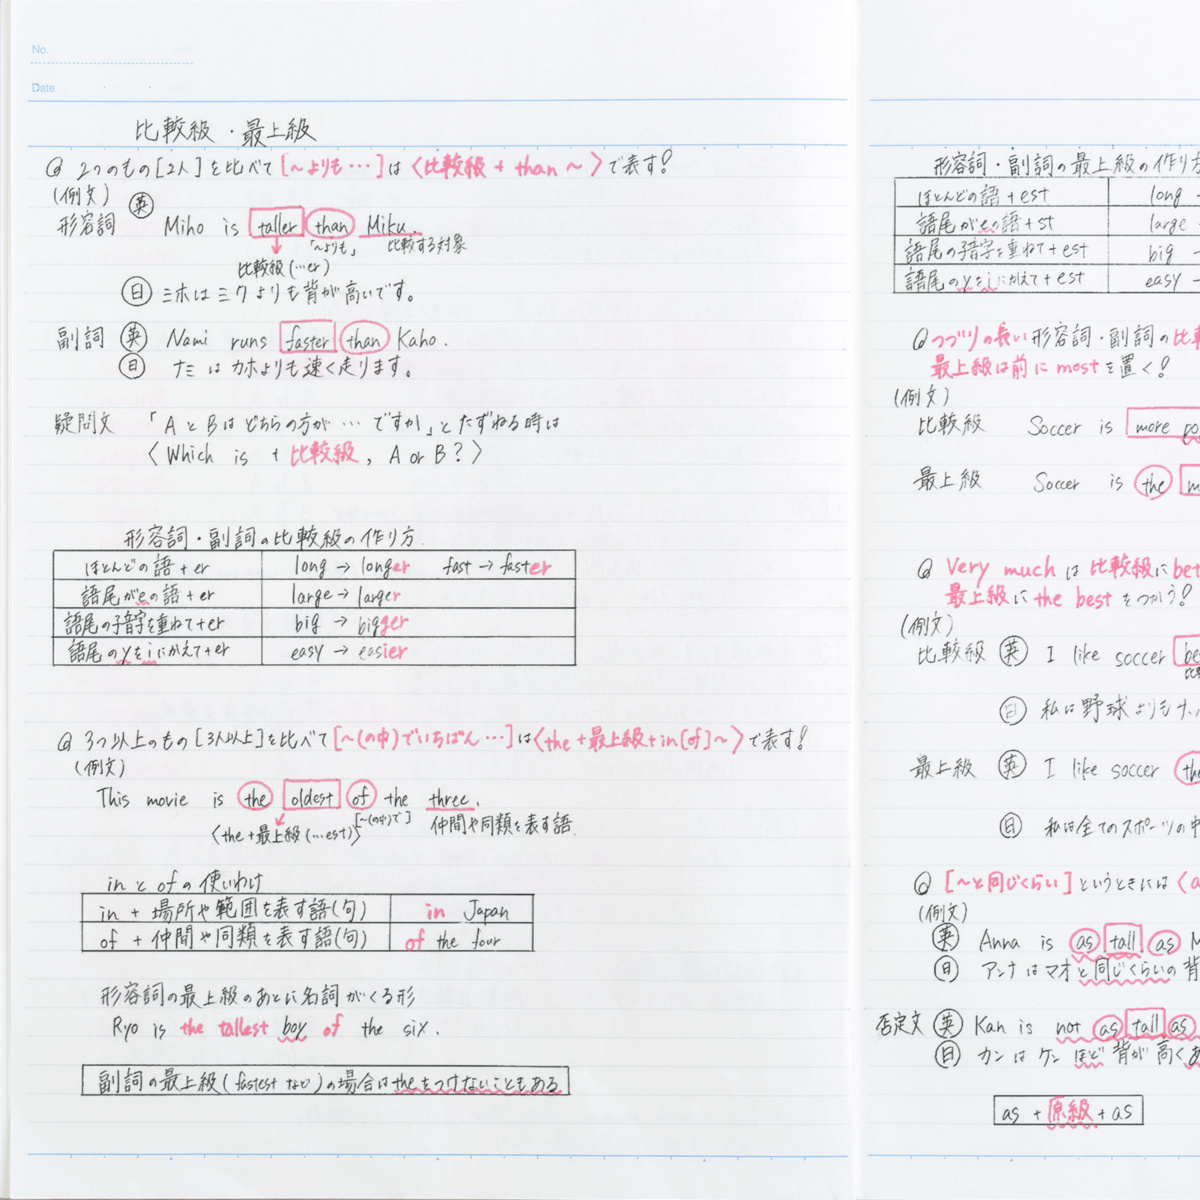 No.
Date
比較級・最上級
◎ 2つのもの[2人]を比べて[～よりも…]は〈比較級+than～〉で表す!
(例文)
形容詞 英 Miho is taller than Miku.
「～よりも」 比較する対象
比較級(…er)
日 ミホはミクよりも背が高いです。
副詞 英 Nami runs faster than Kaho.
日 ナミはカホよりも速く走ります。
疑問文 「AとBはどちらの方が…ですか」とたずねる時は
〈Which is + 比較級, A or B?〉
形容詞・副詞の比較級の作り方
ほとんどの語+er long → longer fast → faster
語尾がeの語+er large → larger
語尾の子音字を重ねて+er big → bigger
語尾のyをiにかえて+er easy → easier
◎ 3つ以上のもの[3人以上]を比べて[～(の中)でいちばん…]は〈the+最上級+in[of]～〉で表す!
(例文)
This movie is the oldest of the three.
〈the+最上級(…est)〉 [～(の中)で] 仲間や同類を表す語
inとofの使いわけ
in + 場所や範囲を表す語(句) in Japan
of + 仲間や同類を表す語(句) of the four
形容詞の最上級のあとに名詞がくる形
Ryo is the tallest boy of the six.
副詞の最上級(fastestなど)の場合はtheをつけないこともある
形容詞・副詞の最上級の作り方
ほとんどの語+est long →
語尾がeの語+st large →
語尾の子音字を重ねて+est big →
語尾のyをiにかえて+est easy →
◎ つづりの長い形容詞・副詞の比較
最上級は前にmostを置く!
(例文)
比較級 Soccer is more po
最上級 Soccer is the m
◎ Very muchは比較級にbet
最上級にthe bestをつかう!
(例文)
比較級 英 I like soccer be
比
日 私は野球よりもサッ
最上級 英 I like soccer the
日 私は全てのスポーツの中
◎ [～と同じくらい]というときには〈a
(例文)
英 Anna is as tall as M
日 アンナはマオと同じくらいの背
否定文 英 Kan is not as tall as
日 カンはケンほど背が高くあ
as + 原級 + as